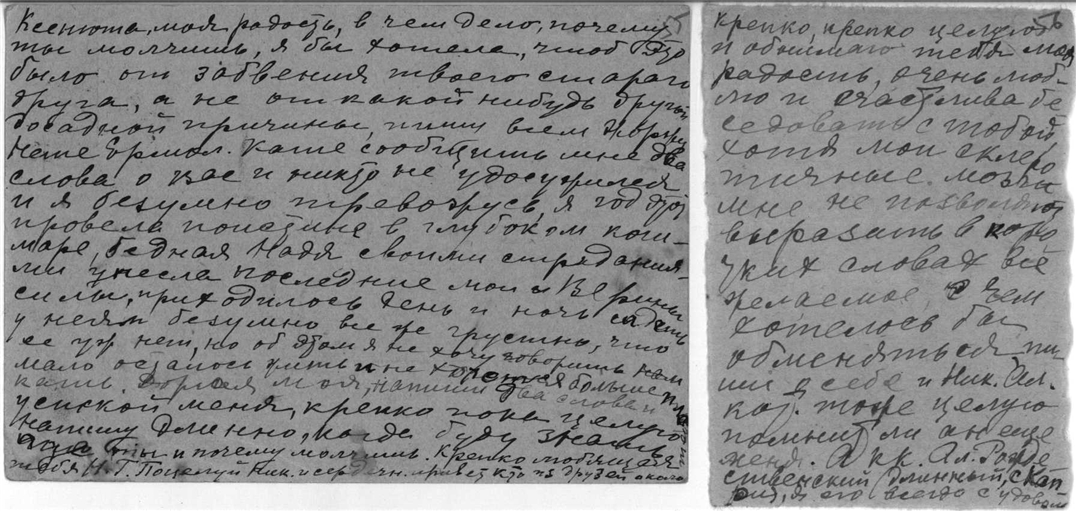 Ксенюша, моя радость, в чем дело, почему
ты молчишь, я бы хотела, чтоб это
было от забвения твоего старого
друга, а не от какой нибудь другой
досадной причины, пишу всем
Ермол. Кате сообщить мне два
слова о вас и никто не удосужился
и я безумно тревожусь, я год этот
провела поистине в глубоком кош-
маре, бедная Надя своими страдания-
ми унесла последние мои и Верины
силы, приходилось день и ночь сидеть
у нея и безумно все же грустно, что
ее уж нет, но об этом я не хочу говорить нам
мало осталось жить и не хочется больше пла
кать. Дорогая моя, напиши два слова и
успокой меня, крепко пока целую
напишу длинно, когда буду знать
где ты и почему молчишь. Крепко любящая
тебя Н. Г. Поцелуй Ник. и сердечн. привет кто из друзей около
56
крепко, крепко целую
и обнимаю тебя моя
радость, очень люб-
лю и счастлива бе
седовать с тобой
хотя мои склеро
тичные мозги
мне не позволяют
выразить в коро
тких словах всё
желаемое, чем
хотелось бы
обменяться пи-
ши о себе и Ник. Ал.
кот. тоже целую
помнит ли он еще
меня. А как Ал. Рожде
ственский длинный, с
я его всегда с удовол